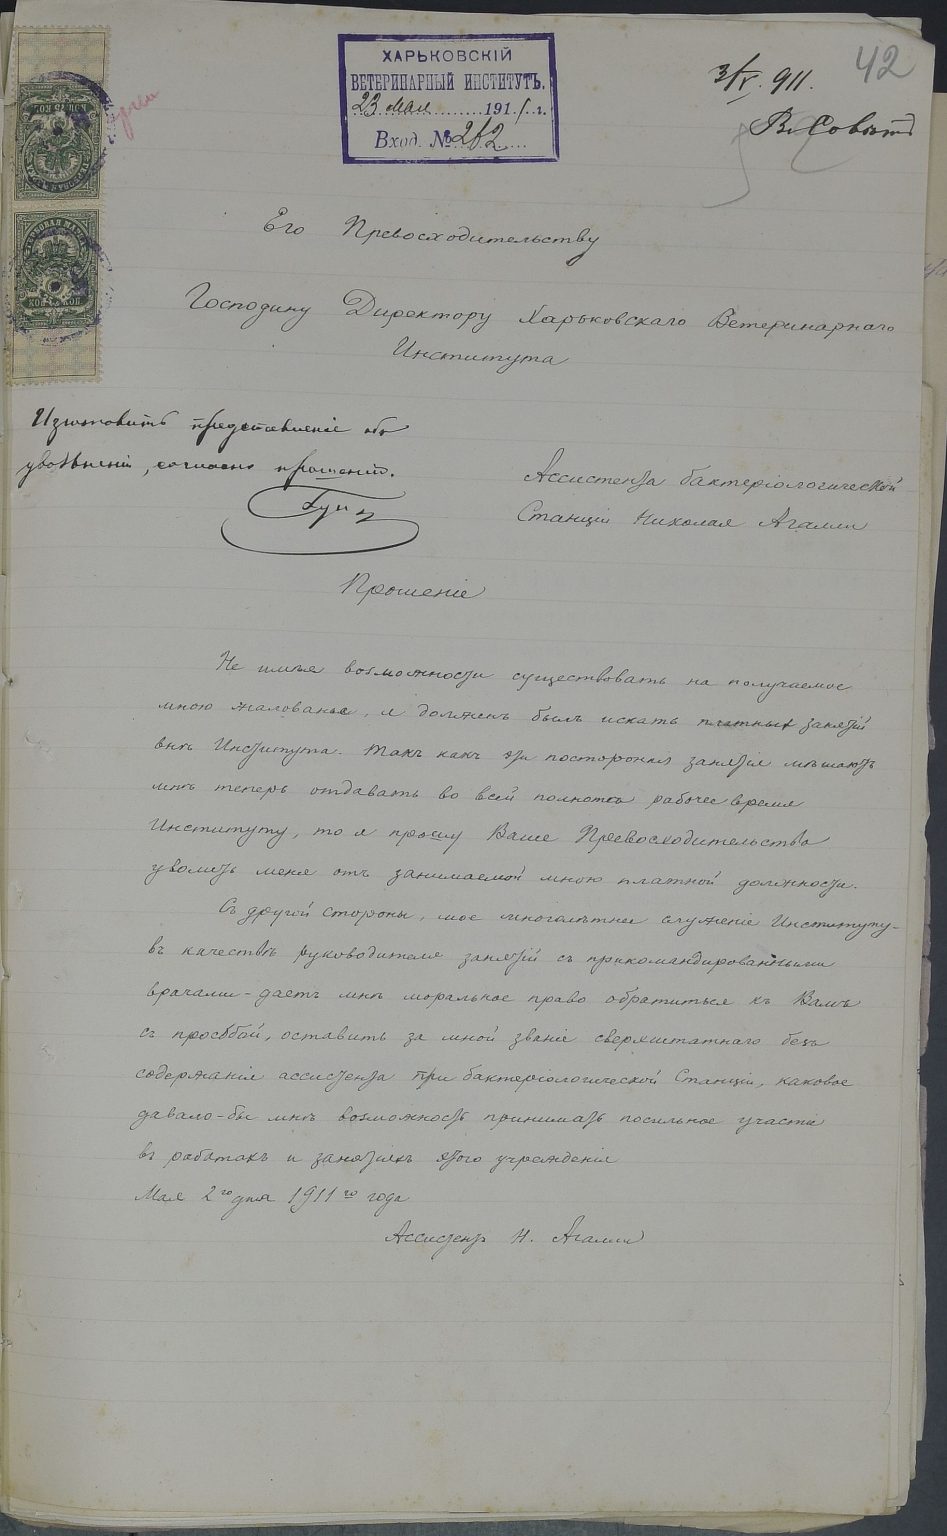 42
ХАРЬКОВСКІЙ
ВЕТЕРИНАРНЫЙ ИНСТИТУТЪ.
23 мая 1911 г.
Вход. № 262
3/V. 911.
Въ Советъ
Его Превосходительству
Господину Директору Харьковскаго Ветеринарнаго
Института
Изготовить представленіе объ
увольненіи, согласно прошенію.
Ассистента бактеріологической
Станціи Николая Агалли
Прошеніе
Не имѣя возможности существовать на получаемое
мною жалованье, я долженъ былъ искать платныхъ занятій
внѣ Института. Такъ какъ эти постороннія занятія мѣшаютъ
мнѣ теперь отдавать во всей полнотѣ рабочее время
Институту, то я прошу Ваше Превосходительство
уволить меня отъ занимаемой мною платной должности.
Съ другой стороны, мое многолѣтнее служеніе Институту-
въ качествѣ руководителя занятій съ прикомандированными
врачами-даетъ мнѣ моральное право обратиться къ Вамъ
съ просьбой, оставить за мной званіе сверхштатнаго безъ
содержанія ассистента при бактеріологической Станціи, каковое
давало-бы мнѣ возможность принимать посильное участіе
въ работахъ и занятіяхъ этого учрежденія
Мая 2го дня 1911го года
Ассистентъ Н. Агалли